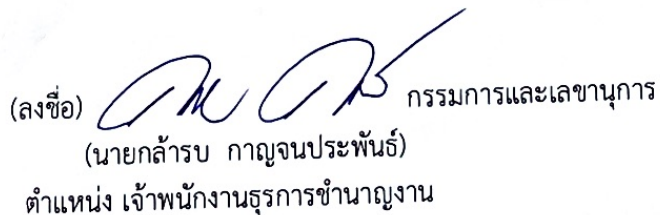 (ลงชื่อ) กรรมการและเลขานุการ
(นายกล้ารบ กาญจนประพันธ์)
ตำแหน่ง เจ้าพนักงานธุรการชำนาญงาน